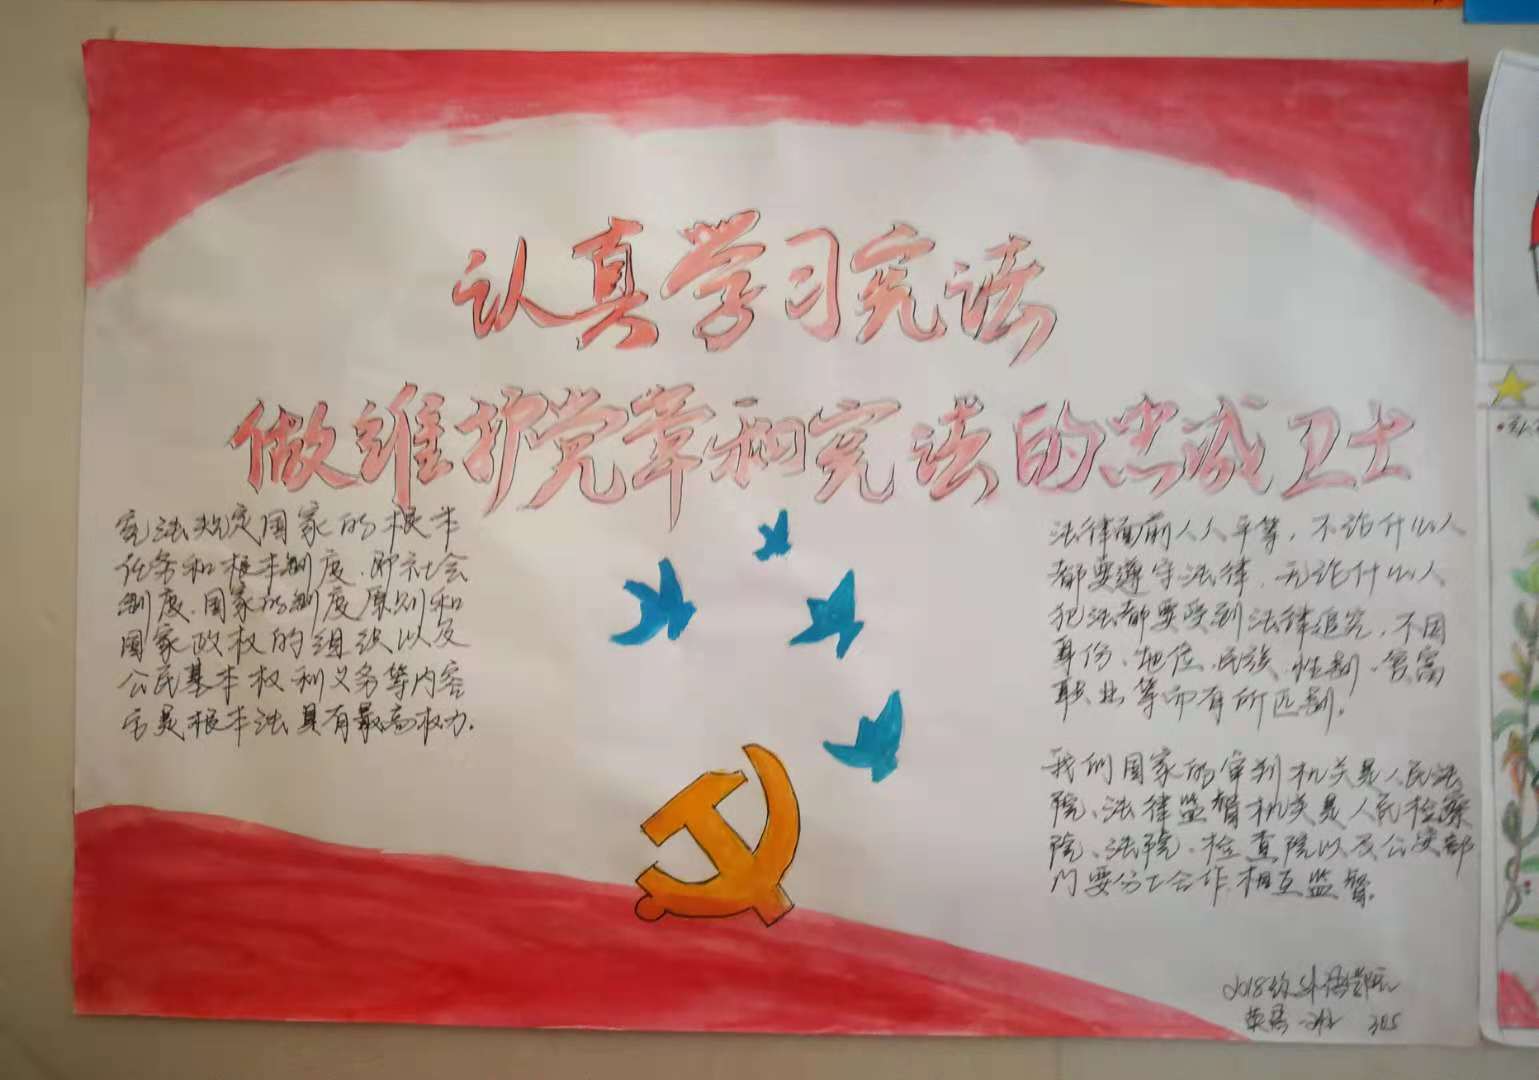 认真学习宪法
做维护党章和宪法的忠诚卫士
宪法规定国家的根本
任务和根本制度、即社会
制度、国家的制度原则和
国家政权的组织以及
公民基本权利义务等内容
它是根本法具有最高权力.
法律面前人人平等，不论什么人
都要遵守法律、无论什么人
犯法都要受到法律追究，不因
身份、地位、民族、性别、贫富
职业等而有所区别.
我们国家的审判机关是人民法
院、法律监督机关是人民检察
院、法院、检查院以及公安部
门要分工合作、相互监督.
2018级外语学院
英语 385